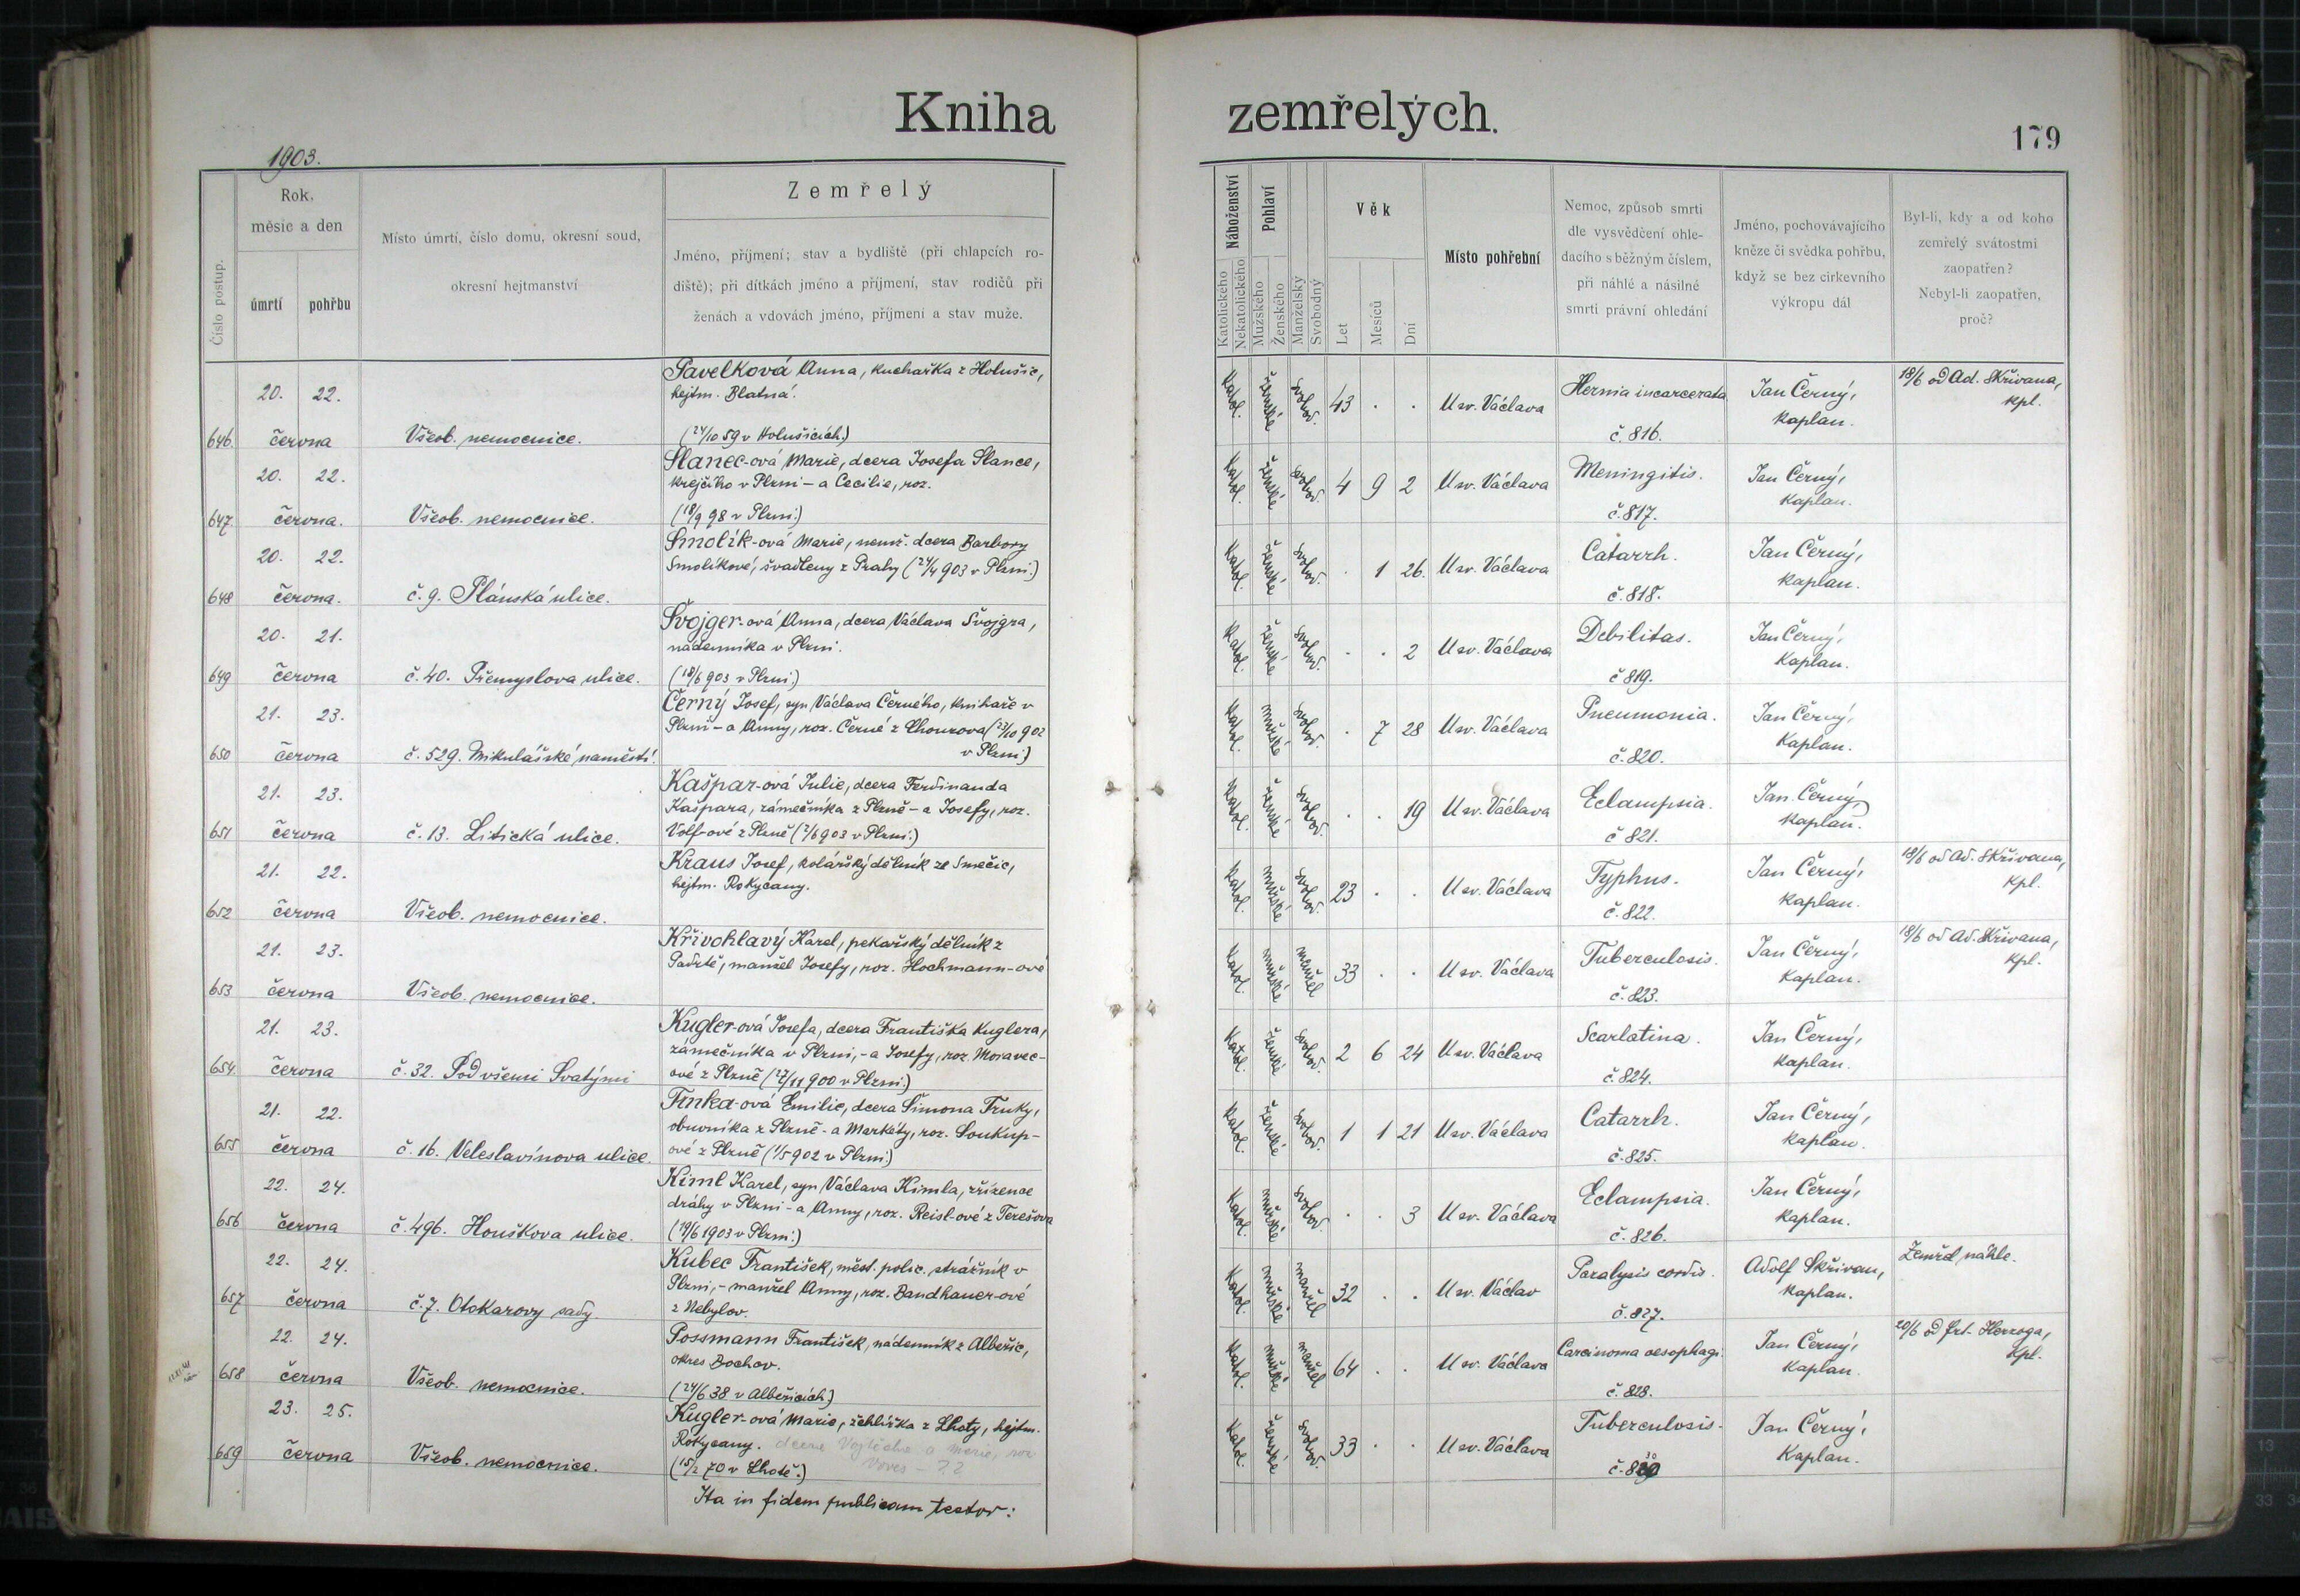 Kniha zemřelých.
179
1903.
Číslo postup.
Rok,
měsíc a den
úmrtí
pohřbu
Místo úmrtí, číslo domu, okresní soud,
okresní hejtmanství
Zemřelý
Jméno, příjmení; stav a bydliště (při chlapcích ro-
diště); při dítkách jméno a příjmení, stav rodičů při
ženách a vdovách jméno, příjmení a stav muže.
Náboženství
Katolického
Nekatolického
Pohlaví
Mužského
Ženského
Manželský
Svobodný
Věk
Let
Mesíců
Dní
Místo pohřební
Nemoc, způsob smrti
dle vysvědčení ohle-
dacího s běžným číslem,
při náhlé a násilné
smrti právní ohledání
Jméno, pochovávajícího
kněze či svědka pohřbu,
když se bez církevního
výkropu dál
Byl-li, kdy a od koho
zemřelý svátostmi
zaopatřen?
Nebyl-li zaopatřen,
proč?
646 20. 22. června Všeob. nemocnice.
Pavelková Anna, kuchařka z Holušic,
hejtm. Blatná.
(24/10 59 v Holušicích)
katol. ženské svobod. 43 . . U sv. Václava
Hernia incarcerata č. 816.
Jan Černý, kaplan.
18/6 od Ad. Skřivana, kpl.
647 20. 22. června. Všeob. nemocnice.
Slanec-ová Marie, dcera Josefa Slance,
krejčího v Plzni – a Cecilie, roz.
(18/9 98 v Plzni.)
katol. ženské svobod. 4 9 2 U sv. Václava
Meningitis. č. 817.
Jan Černý, kaplan.
648 20. 22. června. č. 9. Plánská ulice.
Smolík-ová Marie, nemž. dcera Barbory
Smolíkové, švadleny z Prahy (24/4 903 v Plzni.)
katol. ženské svobod. . 1 26. U sv. Václava
Catarrh. č. 818.
Jan Černý, kaplan.
649 20. 21. června č. 40. Přemyslova ulice.
Švojger-ová Anna, dcera Václava Švojgra,
nádenníka v Plzni.
(18/6 903 v Plzni.)
katol. ženské svobod. . . 2 U sv. Václava
Debilitas. č 819.
Jan Černý, kaplan.
650 21. 23. června č. 529. Mikulášské naměstí.
Černý Josef, syn Václava Černého, knihaře v
Plzni – a Anny, roz. Černé z Chouzova (23/10 902
v Plzni)
katol. mužské svobod. . 7 28 U sv. Václava
Pneumonia. č. 820.
Jan Černý, kaplan.
651 21. 23. června č. 13. Litická ulice.
Kašpar-ová Julie, dcera Ferdinanda
Kašpara, zámečníka z Plzně – a Josefy, roz.
Volf-ové z Plzně (2/6 903 v Plzni.)
katol. ženské svobod. . . 19 U sv. Václava
Eclampsia. č 821.
Jan Černý, kaplan.
652 21. 22. června Všeob. nemocnice.
Kraus Josef, kolářský dělník ze Smečic,
hejtm. Rokycany.
katol. mužské svobod. 23 . . U sv. Václava
Typhus. č. 822.
Jan Černý, kaplan.
18/6 od Ad. Skřivana, kpl.
653 21. 23. června Všeob. nemocnice.
Křivohlavý Karel, pekařský dělník z
Padrtě, manžel Josefy, roz. Hochmann-ové
katol. mužské manžel 33 . . U sv. Václava
Tuberculosis. č. 823.
Jan Černý, kaplan.
18/6 od Ad. Skřivana, kpl.
654 21. 23. června č. 32. Pod všemi Svatými
Kugler-ová Josefa, dcera Františka Kuglera,
zámečníka v Plzni, – a Josefy, roz. Moravec-
ové z Plzně (27/11 900 v Plzni.)
katol. ženské svobod. 2 6 24 U sv. Václava
Scarlatina. č. 824.
Jan Černý, kaplan.
655 21. 22. června č. 16. Veleslavínova ulice.
Trnka-ová Emilie, dcera Šimona Trnky,
obuvníka z Plzně – a Markéty, roz. Soukup-
ové z Plzně (1/5 902 v Plzni)
katol. ženské svobod. 1 1 21 U sv. Václava
Catarrh. č. 825.
Jan Černý, kaplan.
656 22. 24. června č. 496. Houškova ulice.
Kiml Karel, syn Václava Kimla, zřízence
dráhy v Plzni – a Anny, roz. Reisl-ové z Terešova
(19/6 1903 v Plzni.)
katol. mužské svobod. . . 3 U sv. Václava
Eclampsia. č. 826.
Jan Černý, kaplan.
657 22. 24. června č. 7. Otokarovy sady
Kubec František, měst. polic. strážník v
Plzni, – manžel Anny, roz. Bandhauer-ové
z Nebylov.
katol. mužské manžel 32 . . U sv. Václav
Paralysis cordis. č. 827.
Adolf Skřivan, kaplan.
Zemřel náhle.
658 22. 24. června Všeob. nemocnice.
Possmann František, nádenník z Albeřic,
okres Bochov.
(24/6 38 v Albeřicích)
katol. mužské manžel 64 . . U sv. Václava
Carcinoma oesophagi. č. 828.
Jan Černý, kaplan.
20/6 od frt. Herzoga, kpl.
659 23. 25. června Všeob. nemocnice.
Kugler-ová Marie, žehlířka z Lhoty, hejtm.
Rokycany. dcera Vojtěcha a Marie, roz
Voves – ??
(15/2 70 v Lhotě.)
katol. ženské svobod. 33 . . U sv. Václava
Tuberculosis.
Jan Černý, Kaplan.
Ita in fidem publicam testor: